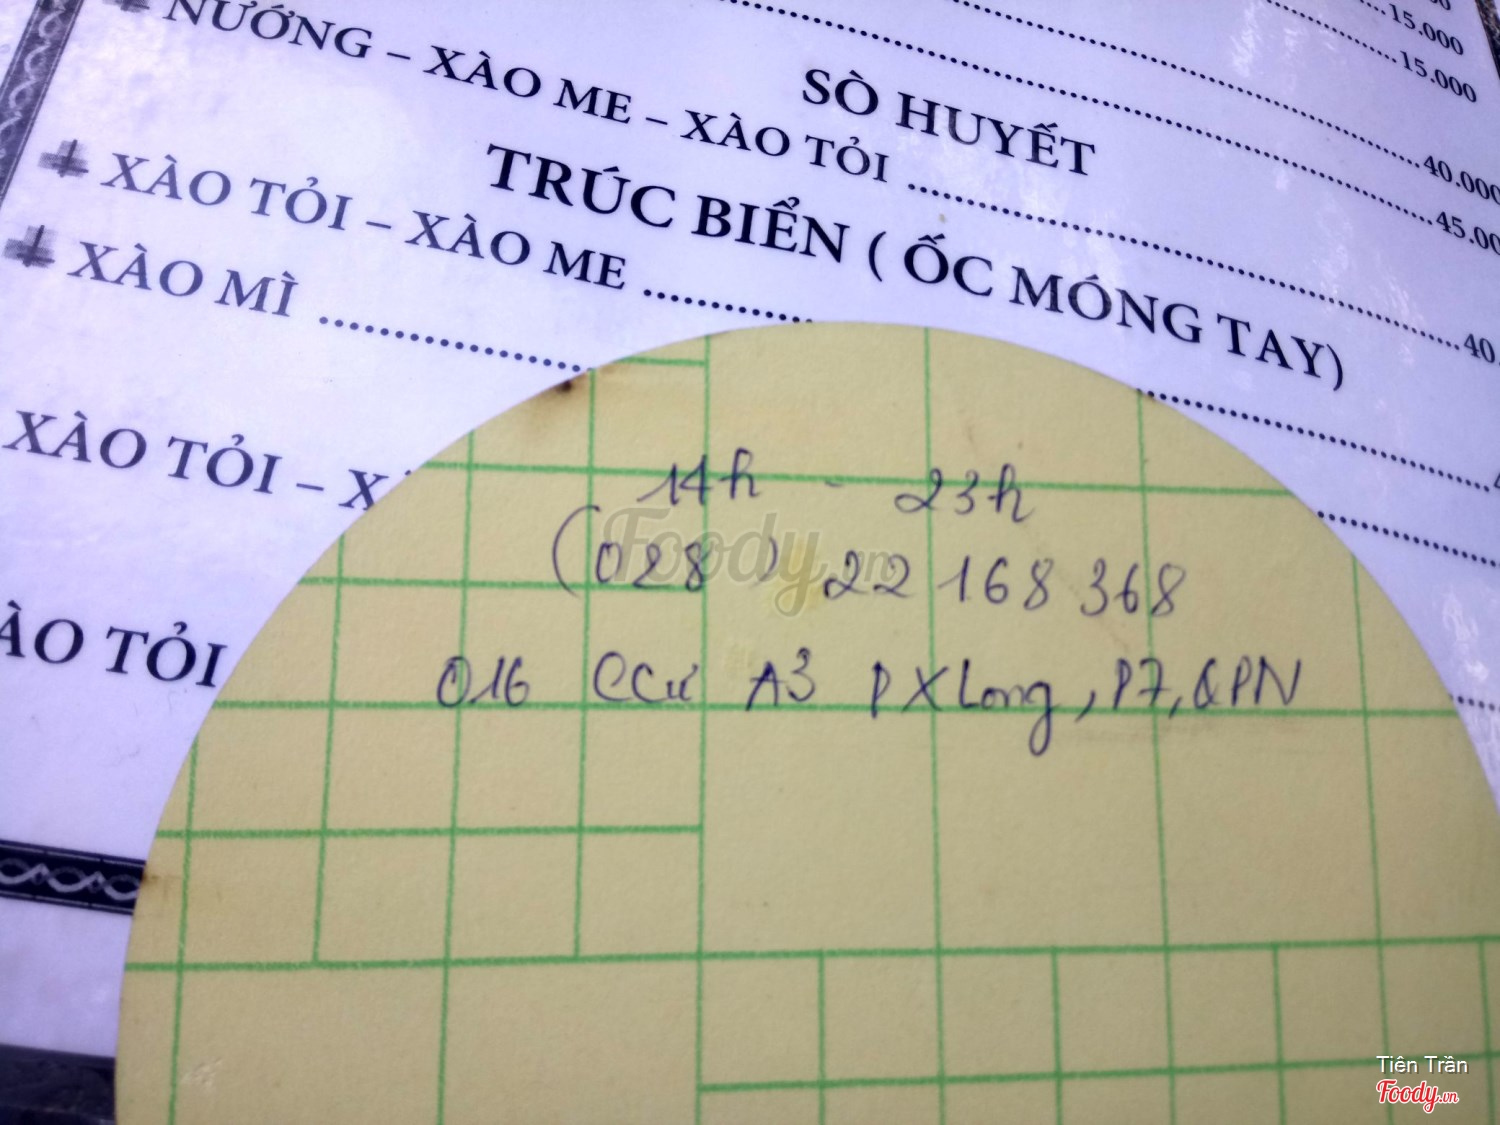 15.000
15.000
SÒ HUYẾT
40.000
NƯỚNG – XÀO ME – XÀO TỎI
45.00
TRÚC BIỂN ( ỐC MÓNG TAY)
XÀO TỎI – XÀO ME
40.
XÀO MÌ
XÀO TỎI – X
ÀO TỎI
14h - 23h
(028) 22 168 368
016 CCư A3 PXLong, P7, QPN
Foody.vn
Tiên Trần
Foody.vn